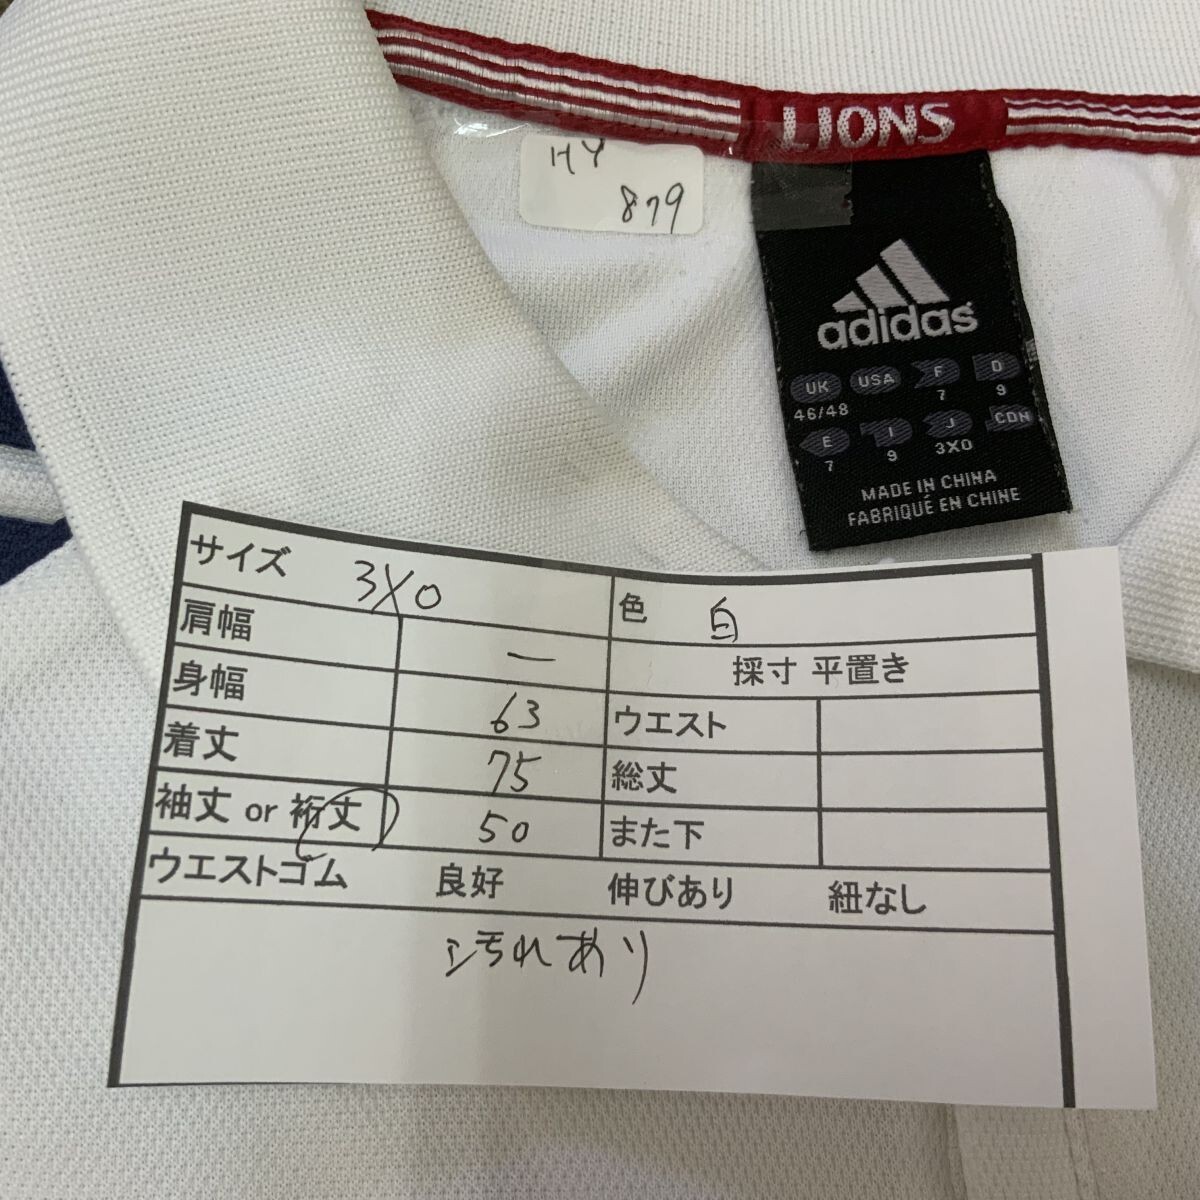 LIONS
HY
879
adidas
UK USA F D
46/48 7 9
E I J CDN
7 9 3XO
MADE IN CHINA
FABRIQUÉ EN CHINE
サイズ 3XO 色 白
肩幅 ー 採寸 平置き
身幅 63 ウエスト
着丈 75 総丈
袖丈 or 裄丈 50 また下
ウエストゴム 良好 伸びあり 紐なし
汚れあり